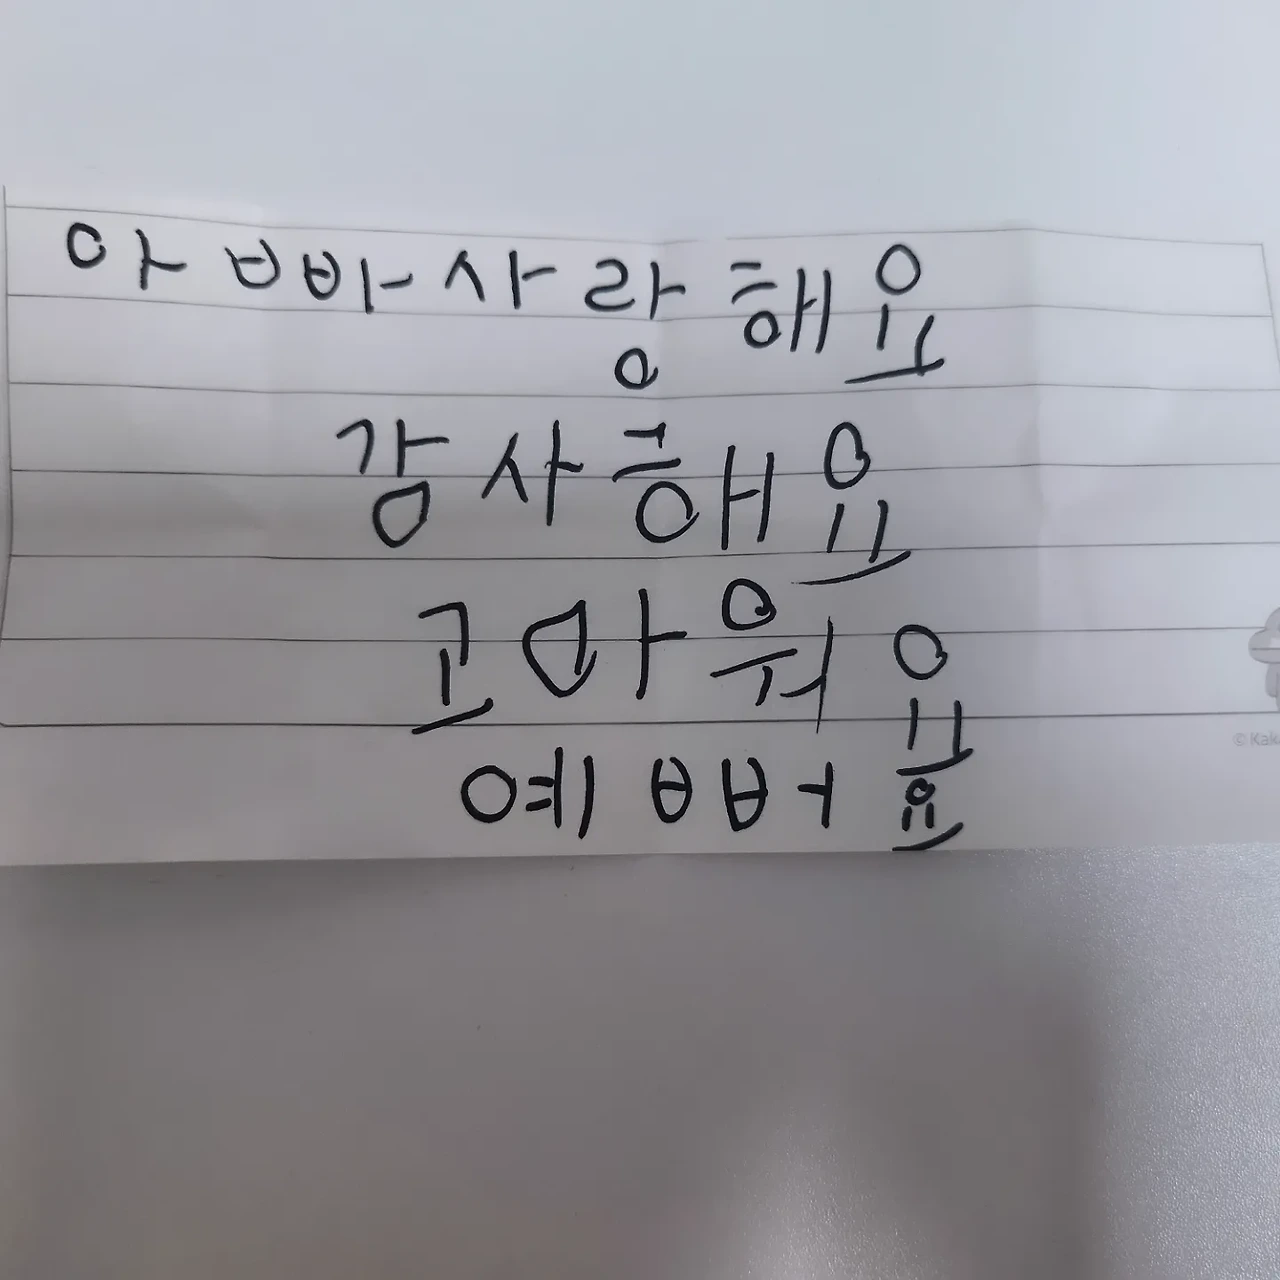 아빠사랑해요
감사해요
고마워요
예빠요
© Kak